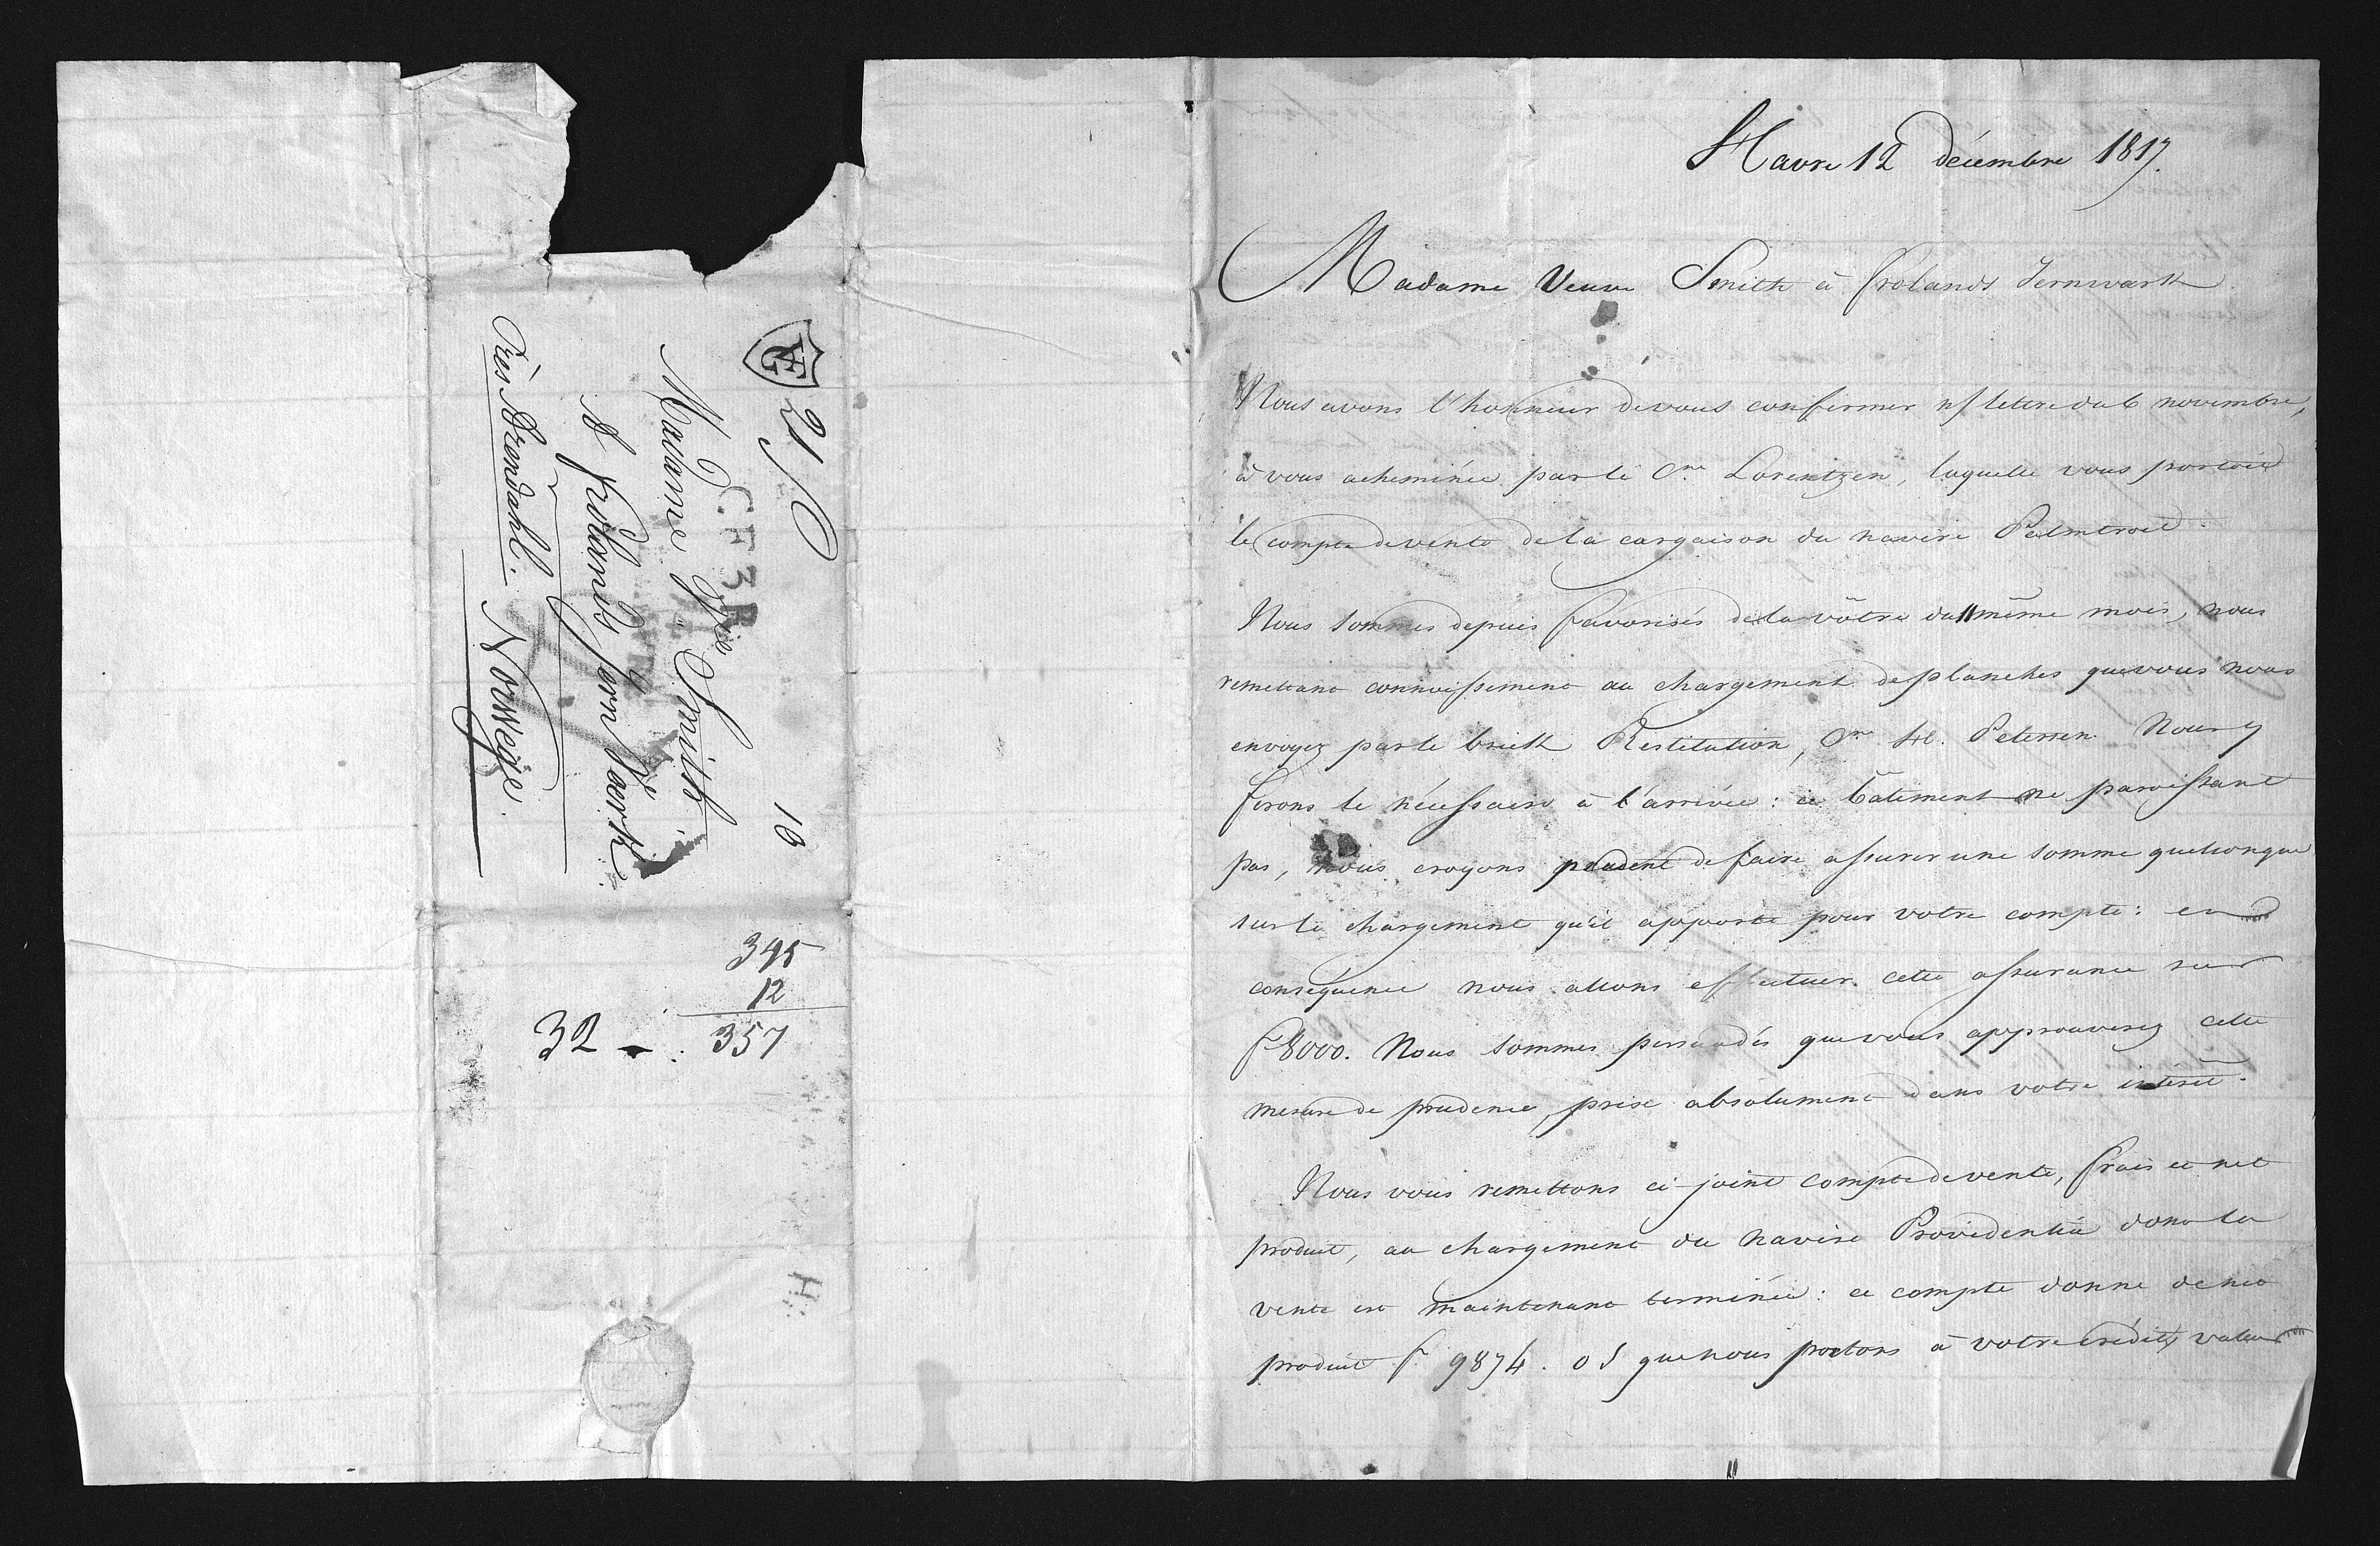 Havre 12 décembre 1817.
Madame Veuve Smith à Frolands Jernwærk
Nous avons l'honneur de vous confirmer n/ lettre du 6 novembre,
à vous acheminée par le Cne Lorentzen, laquelle vous portoit
le compte de vente de la cargaison du navire Palmtroed.
Nous sommes depuis favorisés de la vôtre du 11 même mois, nous
remettant connoissement au chargement de planches que vous nous
envoyez par le brick Restitution, Cne H. Petersen. Nous y
ferons le nécessaire à l'arrivée: ce bâtiment ne paroissant
pas, nous croyons prudent de faire assurer une somme quelconque
sur le chargement qu'il apporte pour votre compte: en
conséquence nous allons effectuer cette assurance sur
F 8000. Nous sommes persuadés que vous approuverez cette
mesure de prudence, prise absolument dans votre intérêt.
Nous vous remettons ci-joint compte de vente, frais et net
produit, au chargement du navire Providentia dont la
vente est maintenant terminée: ce compte donne de net
produit f 9874. 05 que nous portons à votre crédit, valeur
21
10
C.F.3.R
Madame Vve Smith
à Frolands Jern Værk
Près Arendahl. Norwège.
345
12
357
32
H